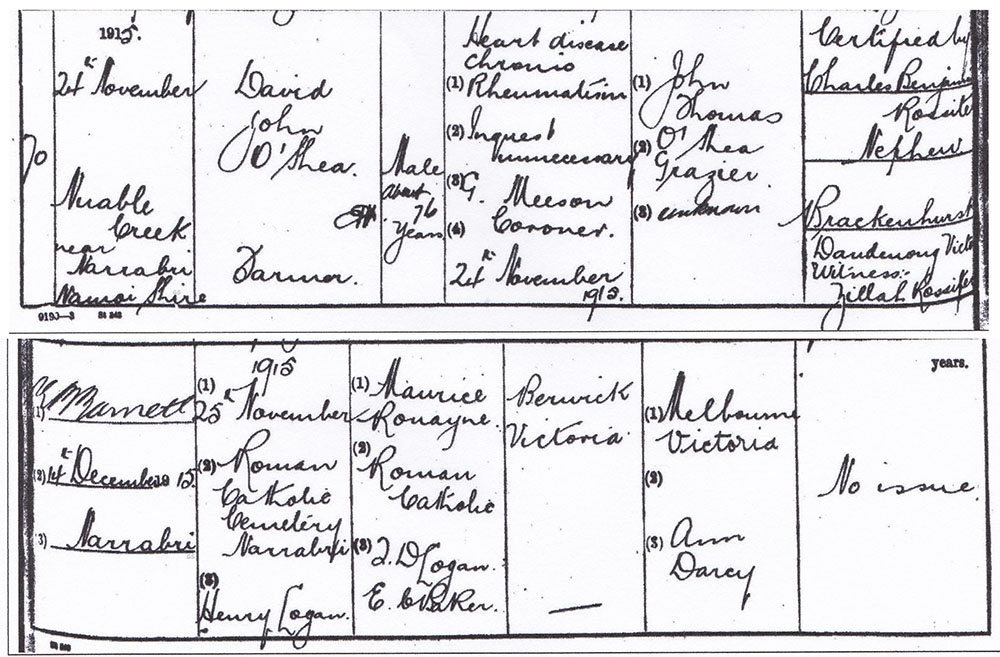 1915.
24th November
Nuable
Creek
near
Narrabri
Namoi Shire
David
John
O'Shea.
Farmer.
Male
About
76
Years
Heart disease
chronic
(1) Rheumatism
(2) Inquest
unnecessary
(3) G. Meeson
(4) Coroner.
24th November
1915.
(1) John
Thomas
(2) O'Shea
Grazier.
(3) unknown
Certified by
Charles Benjamin
Rossiter
Nephew
Brackenhurst
Dandenong Victo
Witness:-
Zillah Rossiter
9190—3
84 343
Barnett
(2) 14th December 1915
(3) Narrabri
1915
(1)
25th November
(2) Roman
Catholic
Cemetery
Narrabri
(3)
Henry Cogan.
(1) Maurice
Ronayne.
(2)
Roman
Catholic
(3) J. D Cogan.
E. C Baker.
Berwick
Victoria.
(1) Melbourne
Victoria
(2)
(3) Ann
Darcy
years.
No issue.